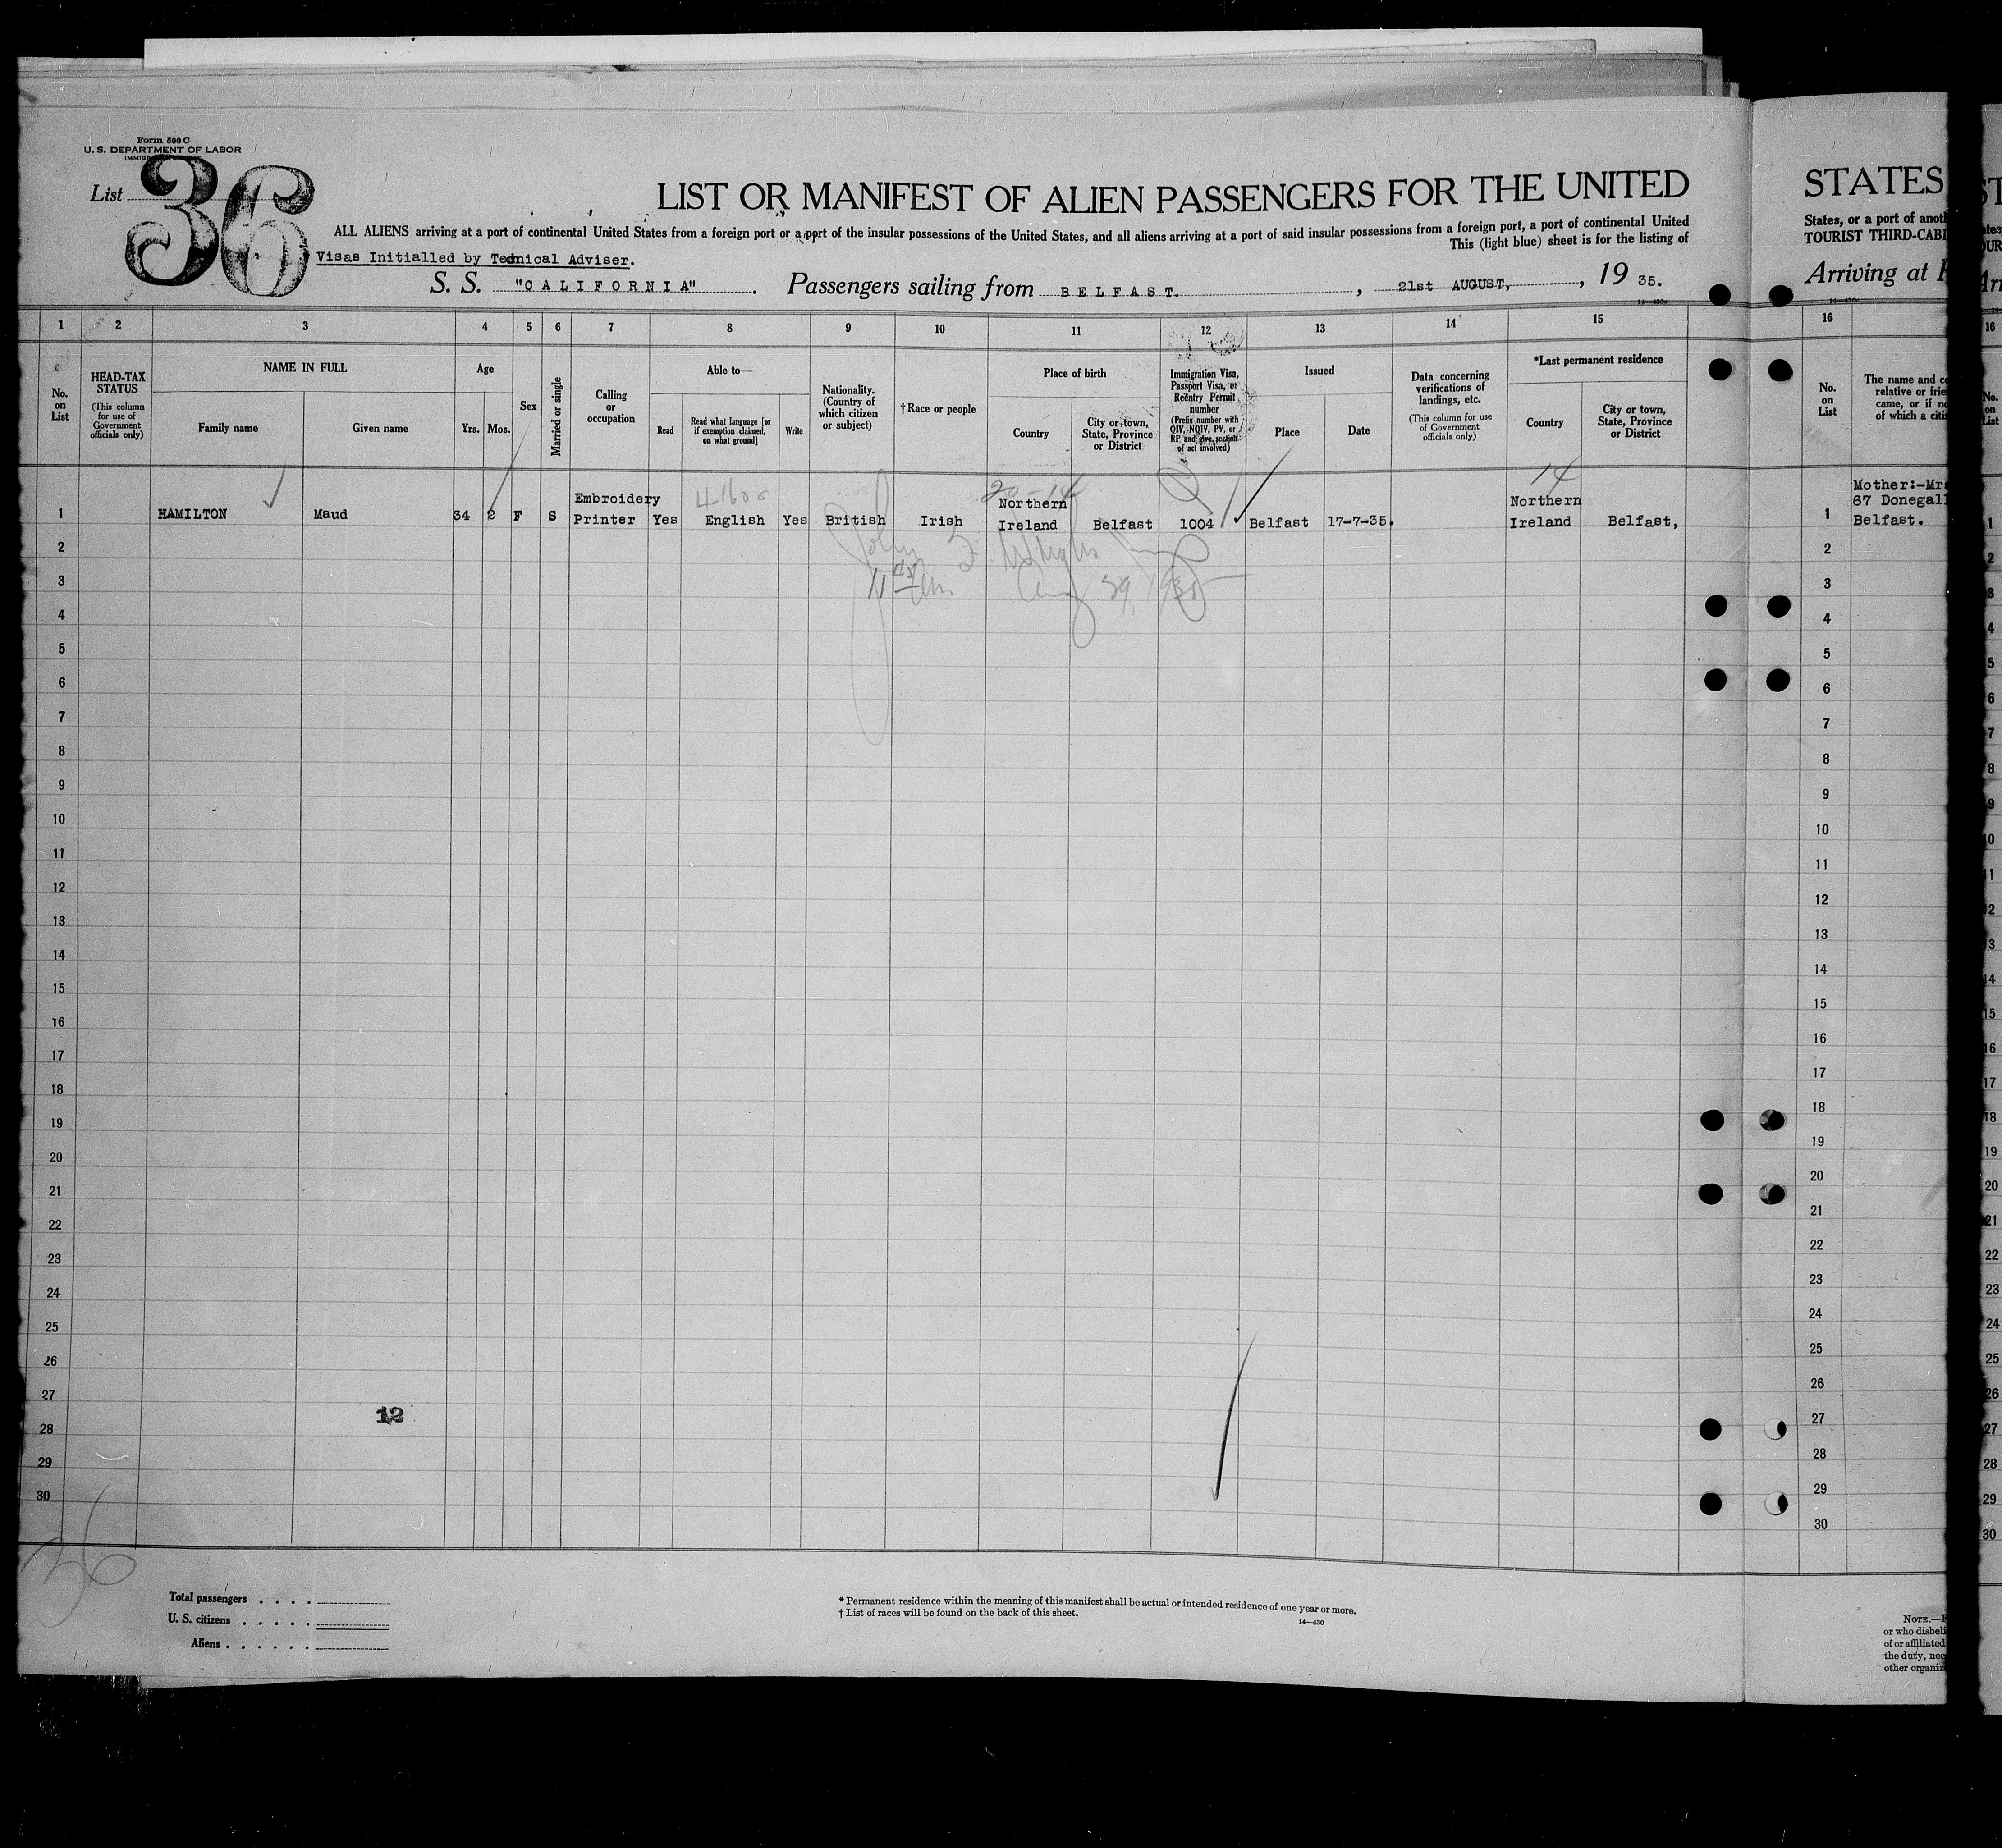 Form 500 C
U. S. DEPARTMENT OF LABOR
List 36
LIST OR MANIFEST OF ALIEN PASSENGERS FOR THE UNITED
ALL ALIENS arriving at a port of continental United States from a foreign port or a port of the insular possessions of the United States, and all aliens arriving at a port of said insular possessions from a foreign port, a port of continental United
This (light blue) sheet is for the listing of
Visas Initialled by Technical Adviser.
S. S. "CALIFORNIA" . Passengers sailing from BELFAST. , 21st AUGUST, , 19 35.
14—430
1 2 3 4 5 6 7 8 9 10 11 12 13 14 15
No. on List
HEAD-TAX STATUS
(This column for use of Government officials only)
NAME IN FULL
Family name
Given name
Age
Yrs. Mos.
Sex
Married or single
Calling or occupation
Able to—
Read
Read what language [or if exemption claimed, on what ground]
Write
Nationality. (Country of which citizen or subject)
† Race or people
Place of birth
Country
City or town, State, Province or District
Immigration Visa, Passport Visa, or Reentry Permit number
(Prefix number with QIV, NQIV, PV, or RP and give section of act involved)
Issued
Place
Date
Data concerning verifications of landings, etc.
(This column for use of Government officials only)
*Last permanent residence
Country
City or town, State, Province or District
14
1 HAMILTON Maud 34 2 F S Embroidery Printer Yes English Yes British Irish Northern Ireland Belfast 1004 Belfast 17-7-35. Northern Ireland Belfast,
2
3
Aug 29, 1935
4
5
6
7
8
9
10
11
12
13
14
15
16
17
18
19
20
21
22
23
24
25
26
27
12
28
29
30
36
Total passengers
U. S. citizens
Aliens
* Permanent residence within the meaning of this manifest shall be actual or intended residence of one year or more.
† List of races will be found on the back of this sheet.
14—430
STATES
States, or a port of anoth
TOURIST THIRD-CABI
Arriving at
16
No. on List
The name and
relative or frie
came, or if no
of which a citi
Mother:-Mr
67 Donegall
1 Belfast.
2
3
4
5
6
7
8
9
10
11
12
13
14
15
16
17
18
19
20
21
22
23
24
25
26
27
28
29
30
NOTE.—
or who disbeli
of or affiliated
the duty, nec
other organiz
16
No. on List
1
2
3
4
5
6
7
8
9
10
11
12
13
14
15
16
17
18
19
20
21
22
23
24
25
26
27
28
29
30